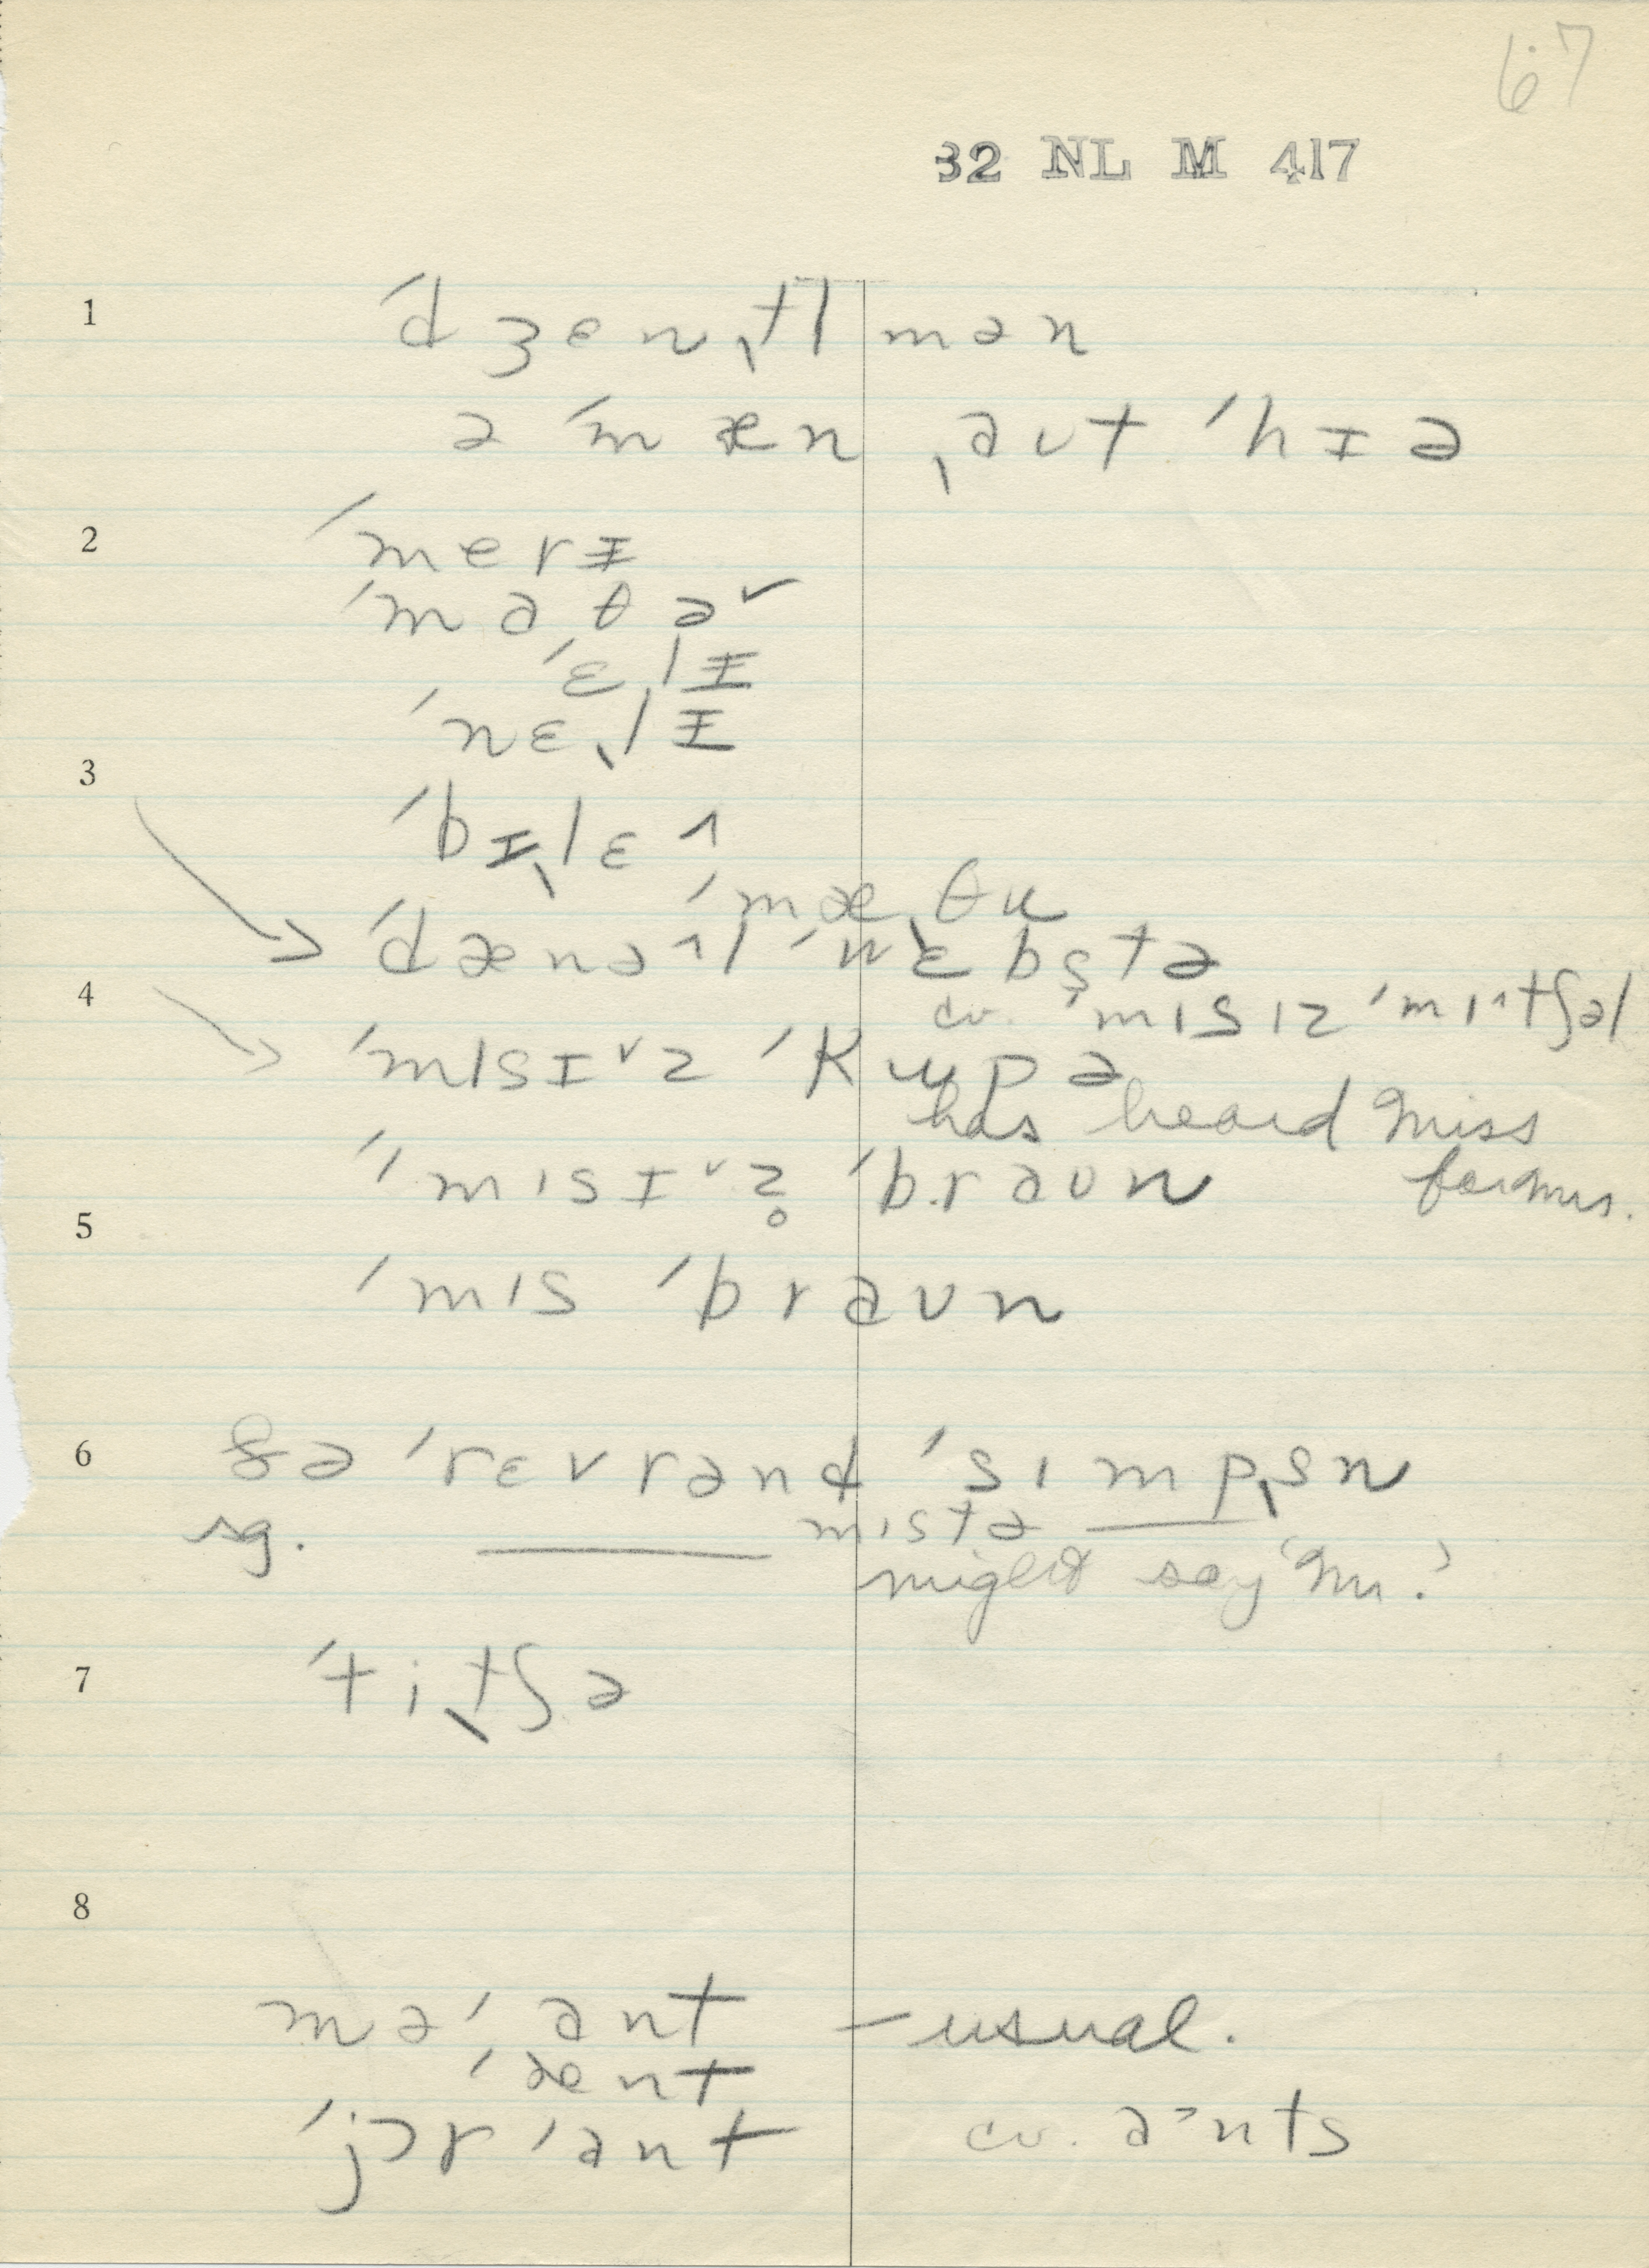 67
32 NL M 417
1 ˈdʒenˌtlmən
ə ˈmæn ˌaʊt ˈhɪə
2 ˈmerɪ
ˈmaθə˅
ˈɛˌlɪ
ˈnɛˌlɪ
3 ˈbɪˌlɛ^
ˈmæˌθu
ˈdænə^l ˈwɛbstə
4 cv. ˈmɪsɪz ˈmɪ^tʃəl
ˈmɪsɪ˅z ˈkupə
has heard Miss
for Mrs.
ˈˈmɪsɪ˅z̥ ˈbraʊn
5 ˈmɪs ˈbraʊn
6 ðə ˈrɛvrənd ˈsɪmpˌsn
sg. mɪstə
might say 'Mr.'
7 ˈtiˌtʃə
8
mə ˈant – usual.
ˈænt
ˈjɔr ˈant cv. a˃nts